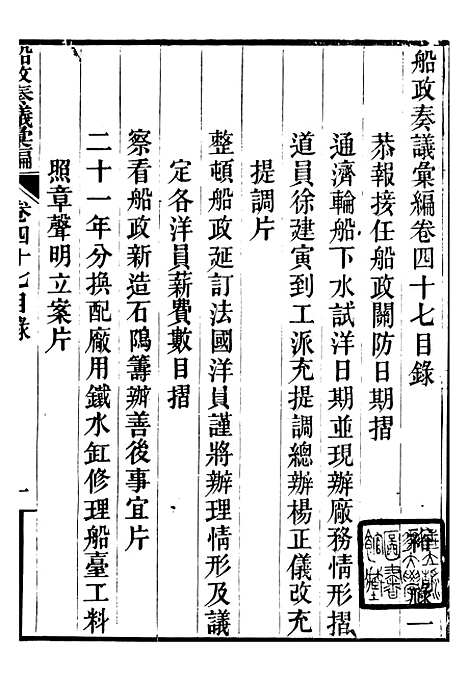 船政奏議彙編卷四十七目錄
恭報接任船政關防日期摺
通濟輪船下水試洋日期並現辦廠務情形摺
道員徐建寅到工派充提調總辦楊正儀改充
提調片
整頓船政延訂法國洋員謹將辦理情形及議
定各洋員薪費數目摺
察看船政新造石隝籌辦善後事宜片
二十一年分換配廠用鐵水缸修理船臺工料
照章聲明立案片
船政奏議彙編
卷四十七目錄
一